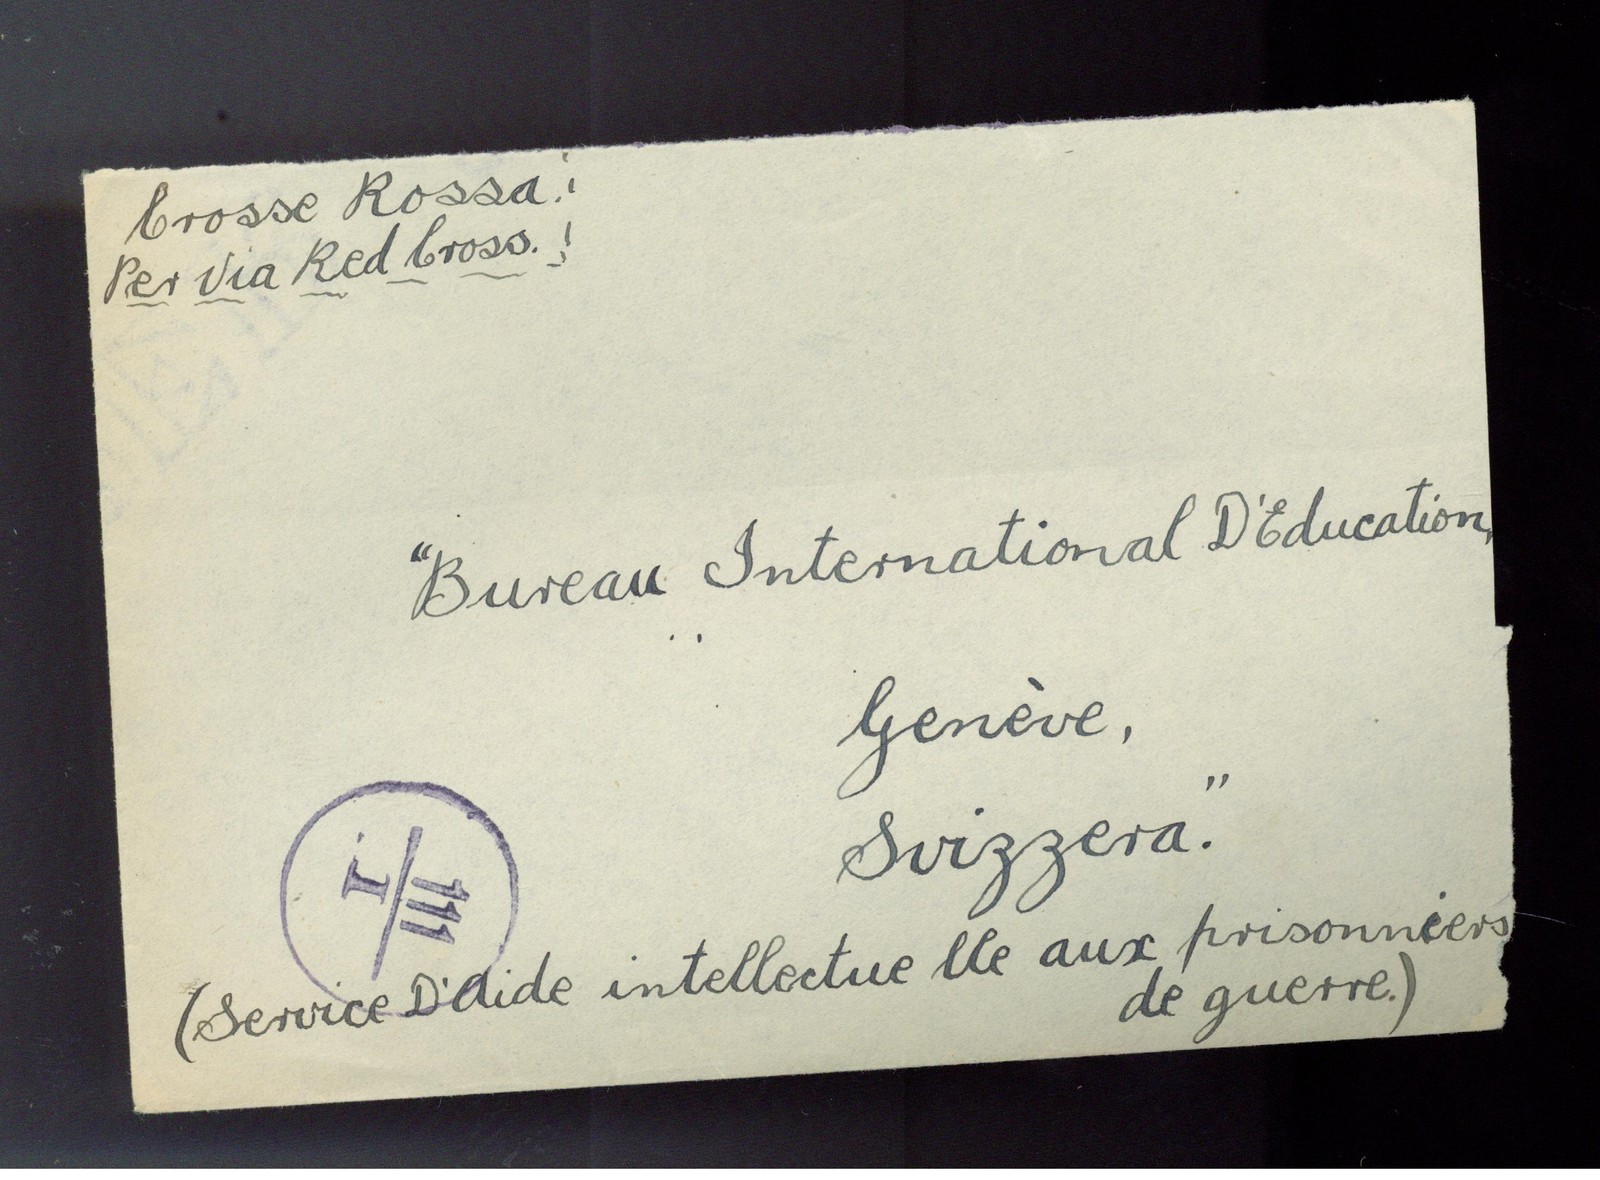 Crosse Rossa!
Per Via Red Cross.!
"Bureau International D'Education,
Genève,
Svizzera."
111
I.
(Service D'Aide intellectue lle aux prisonniers
de guerre.)